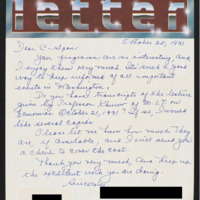 letter
October 28, 1991
Dear C-Span
Your programs are so interesting, and
I enjoy them very much. It's such a good
way to keep informed of all important
debate in Washington.
Do you have transcripts of the lecture
given by Professor of M.I.T. on
Economics October 21, 1991? If so, I would
like several copies.
Please let me know how much they
are if available, and I will send you
a check to cover the cost.
Thank you very much, and keep up
the excellent work you are doing.
Sincerely,